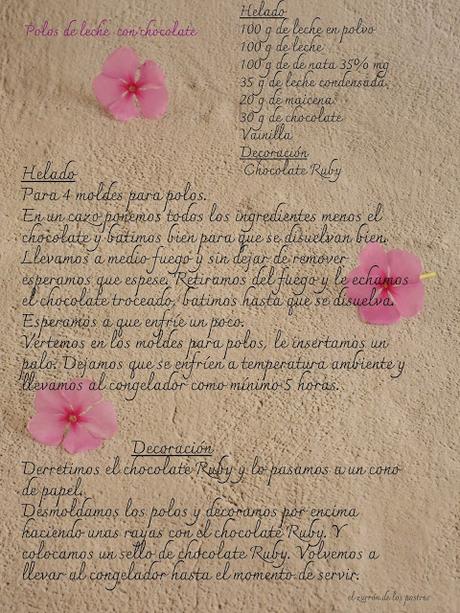 Polos de leche con chocolate
Helado
100 g de leche en polvo
100 g de leche
100 g de de nata 35% mg
35 g de leche condensada
20 g de maicena
30 g de chocolate
Vainilla
Decoración
Chocolate Ruby
Helado
Para 4 moldes para polos.
En un cazo ponemos todos los ingredientes menos el
chocolate y batimos bien para que se disuelvan bien.
Llevamos a medio fuego y sin dejar de remover
esperamos que espese. Retiramos del fuego y le echamos
el chocolate troceado, batimos hasta que se disuelva.
Esperamos a que enfríe un poco.
Vertemos en los moldes para polos, le insertamos un
palo. Dejamos que se enfríen a temperatura ambiente y
llevamos al congelador como mínimo 5 horas.
Decoración
Derretimos el chocolate Ruby y lo pasamos a un cono
de papel.
Desmoldamos los polos y decoramos por encima
haciendo unas rayas con el chocolate Ruby. Y
colocamos un sello de chocolate Ruby. Volvemos a
llevar al congelador hasta el momento de servir.
el zurrón de los postres